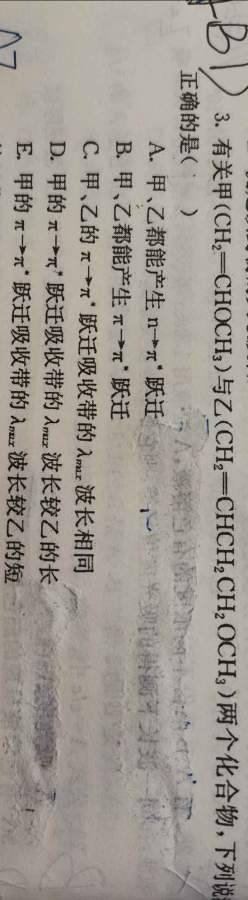 B)
3. 有关甲(CH₂=CHOCH₃)与乙(CH₂=CHCH₂CH₂OCH₃)两个化合物,下列说
正确的是( )
A. 甲、乙都能产生 n→π* 跃迁
B. 甲、乙都能产生 π→π* 跃迁
C. 甲、乙的 π→π* 跃迁吸收带的 λmax 波长相同
D. 甲的 π→π* 跃迁吸收带的 λmax 波长较乙的长
E. 甲的 π→π* 跃迁吸收带的 λmax 波长较乙的短